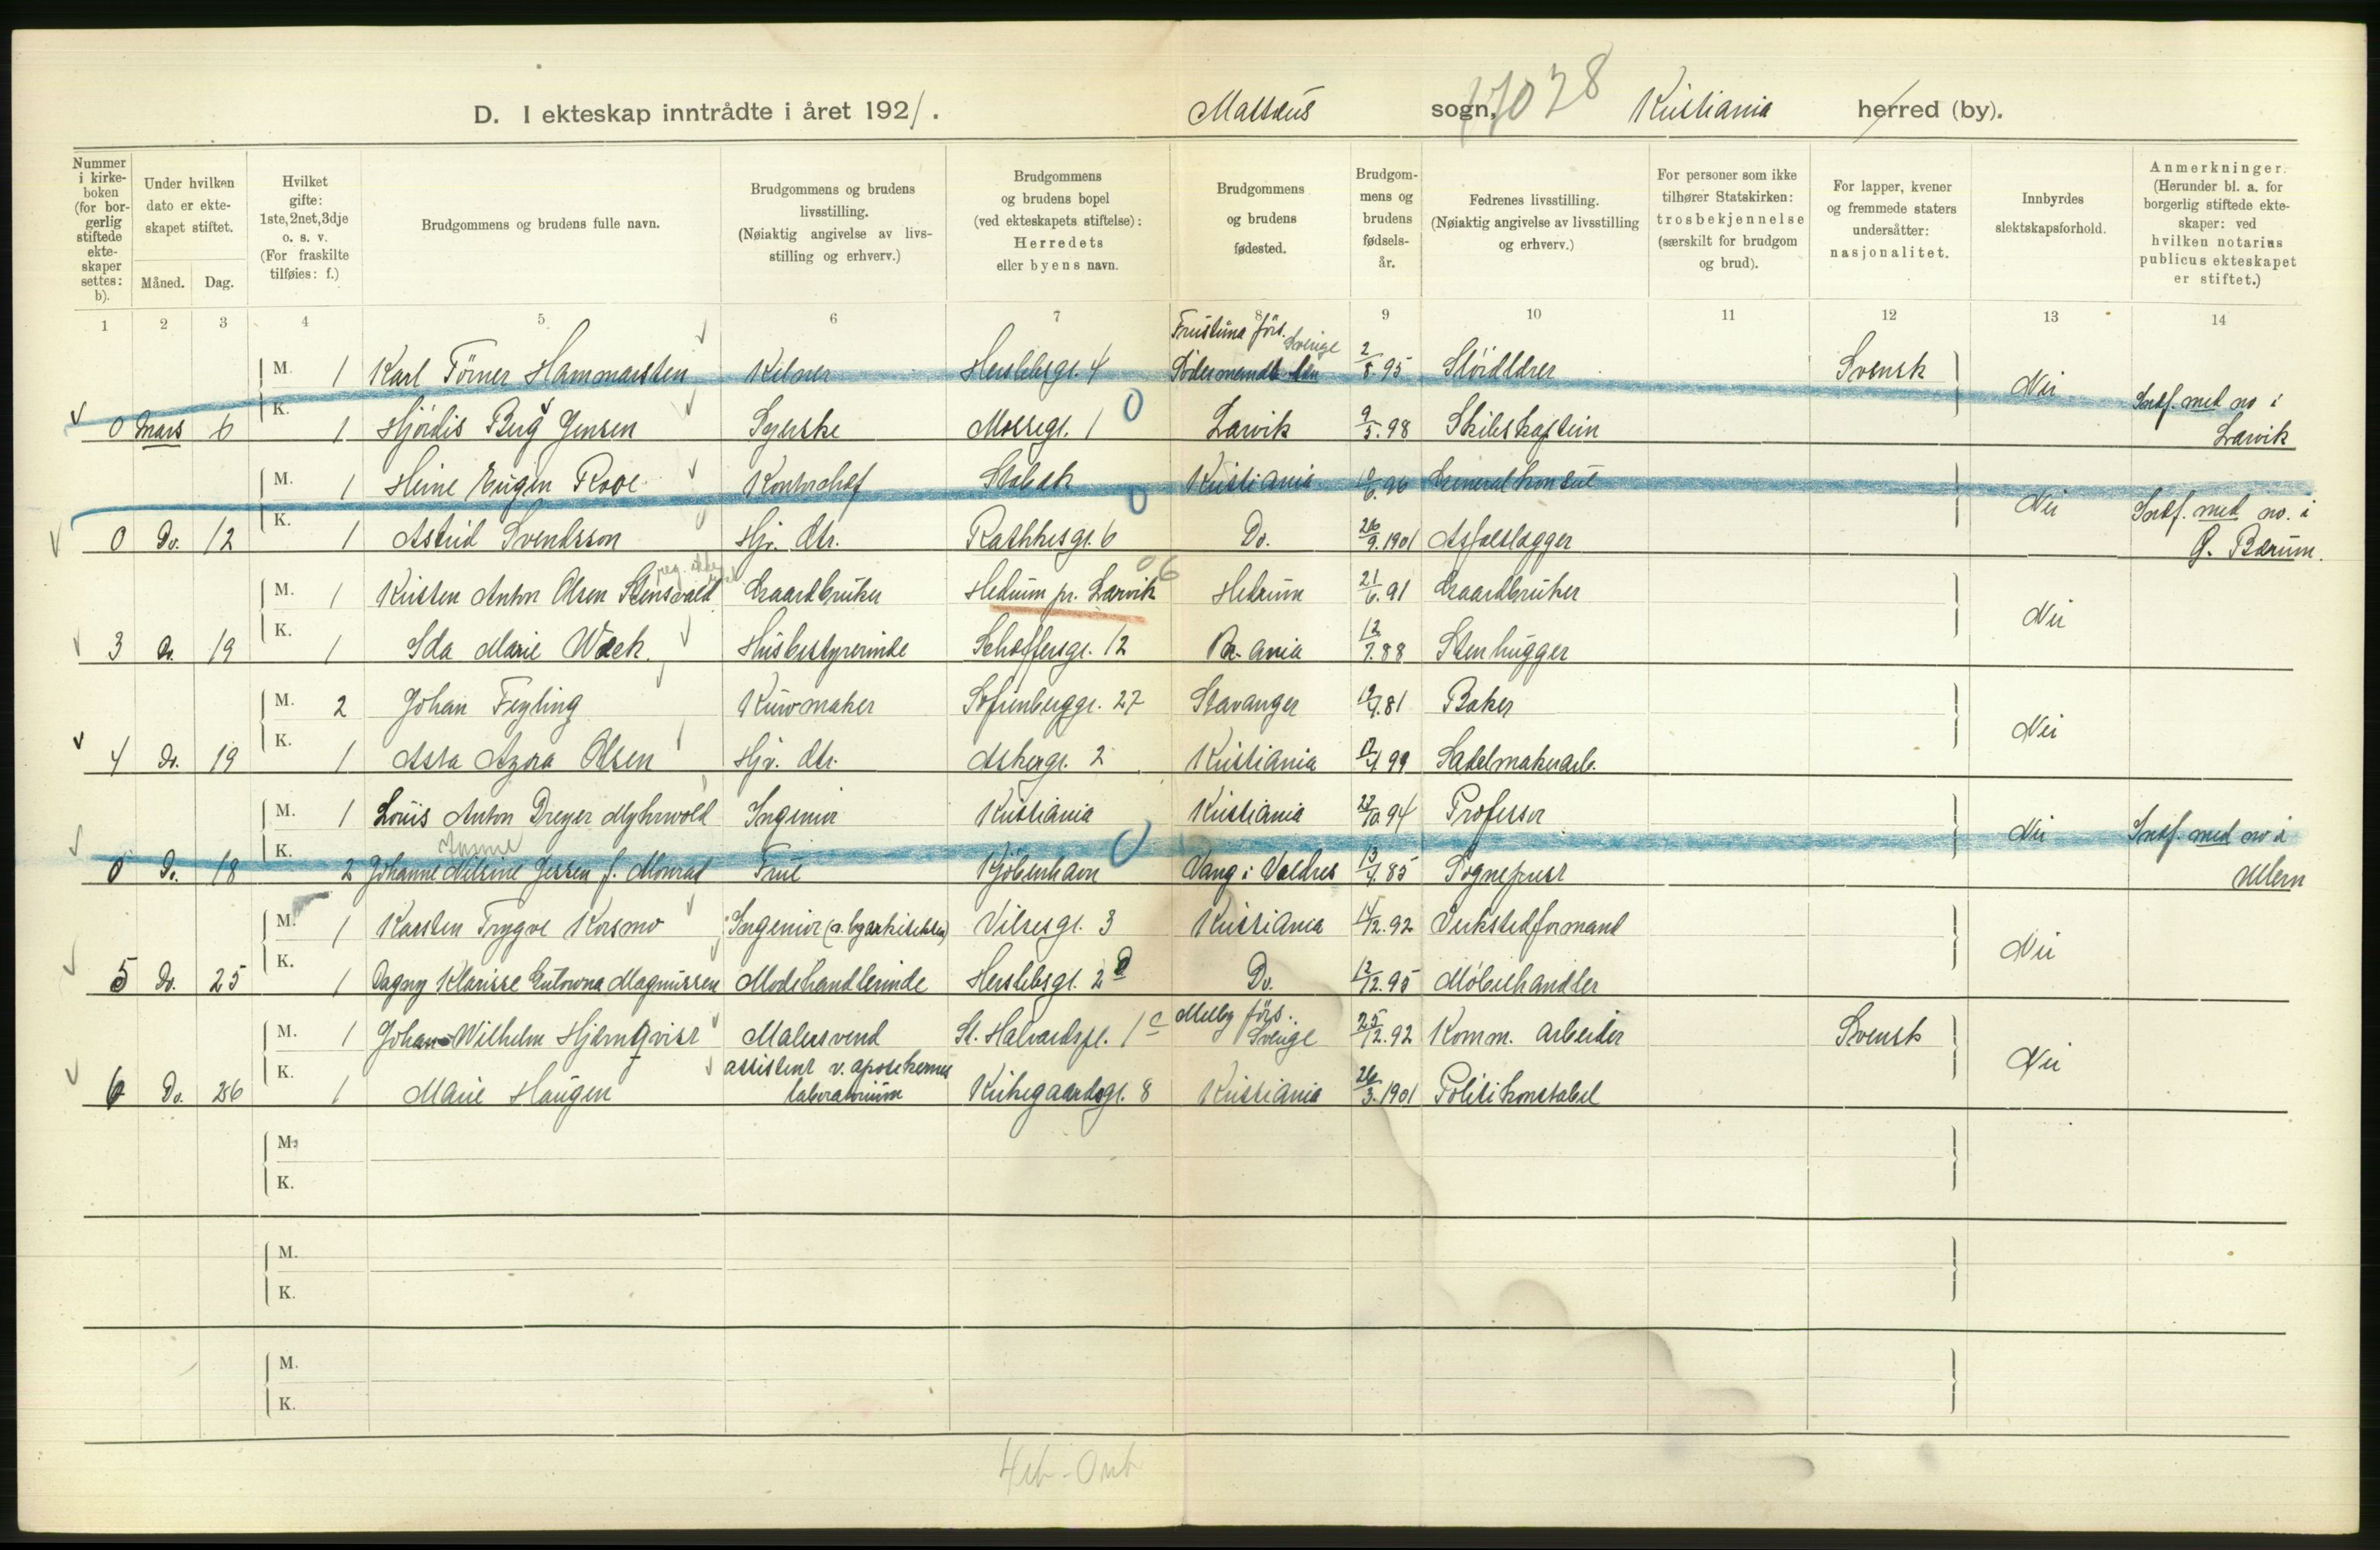 D. I ekteskap inntrådte i året 1921. Mattæus sogn, Kristiania herred (by).
Nummer i kirkeboken (for borgerlig stiftede ekteskaper settes: b).
Under hvilken dato er ekteskapet stiftet.
Måned. Dag.
Hvilket gifte: 1ste, 2net, 3dje o. s. v. (For fraskilte tilføies: f.)
Brudgommens og brudens fulle navn.
Brudgommens og brudens livsstilling. (Nøiaktig angivelse av livsstilling og erhverv.)
Brudgommens og brudens bopel (ved ekteskapets stiftelse): Herredets eller byens navn.
Brudgommens og brudens fødested.
Brudgommens og brudens fødselsår.
Fedrenes livsstilling. (Nøiaktig angivelse av livsstilling og erhverv.)
For personer som ikke tilhører Statskirken: trosbekjennelse (særskilt for brudgom og brud).
For lapper, kvener og fremmede staters undersåtter: nasjonalitet.
Innbyrdes slektskapsforhold.
Anmerkninger. (Herunder bl. a. for borgerlig stiftede ekteskaper: ved hvilken notarius publicus ekteskapet er stiftet.)
1 2 3 4 5 6 7 8 9 10 11 12 13 14
M. 1 Karl Törner Hammarsten Kelner Herslebsgt. 4 förs. Sverige 2/8. 95 Svensk Nei
0 Mars 6 K. 1 Hjördis Berg Jensen Syerske Mossegt. 1 0 Larvik 9/3. 98 Skibskaptein Indf. med no i Larvik
M. 1 Heine Eugen Rooe Kontorchef Stabæk 0 Kristiania 96 Generalkonsul Nei
0 Do. 12 K. 1 Astrid Svendsson Hjv. dtr. Rathkesgt. 6 Do. 26/9. 1901 Asfaltlægger Indf. med no. i Ø. Bærum.
M. 1 Kristen Anton Olsen Stensvold Gaardbruker Hedrum pr. Larvik Hedrum 21/6. 91 Gaardbruker Nei
3 Do. 19 K. 1 Ida Marie Wæck Husbestyrerinde Schæffersgt. 12 Kr.ania 12/7. 88 Stenhugger
M. 2 Johan Feyling Kurvmaker Sofienberggt. 27 Stavanger 81 Baker Nei
4 Do. 19 K. 1 Asta Azora Olsen Hjv. dtr. Askergt. 2 Kristiania 99 Sadelmakerarb.
M. 1 Louis Anton Dreyer Myhrwold Ingeniør Kristiania Kristiania 27/10. 94 Professor Nei Indf. med no i
0 Do. 18 K. 2 Johanne Nilsine Jessen f. Monrad Frue Kjöbenhavn Vang i Valdres 13/4. 85 Sogneprest Ullern
M. 1 Karsten Trygve Korsmo Ingeniør (a. byarkitekten) Vibesgt. 3 Kristiania 14/12. 92 Verkstedformand Nei
5 Do. 25 K. 1 Dagny Klarisse Magnussen Modehandlerinde Herslebsgt. 2 D Do. 12/12. 95 Möbelhandler
M. 1 Johan Wilhelm Hjernqvist Malersvend St. Halvardspl. 1 c Melby förs. Sverige 25/12. 92 Komm. arbeider Svensk Nei
6 Do. 26 K. 1 Marie Haugen assistent v. apotekernes laboratorium Kirkegaardsgt. 8 Kristiania 26/3. 1901 Politikonstabel
M.
K.
M.
K.
M.
K.